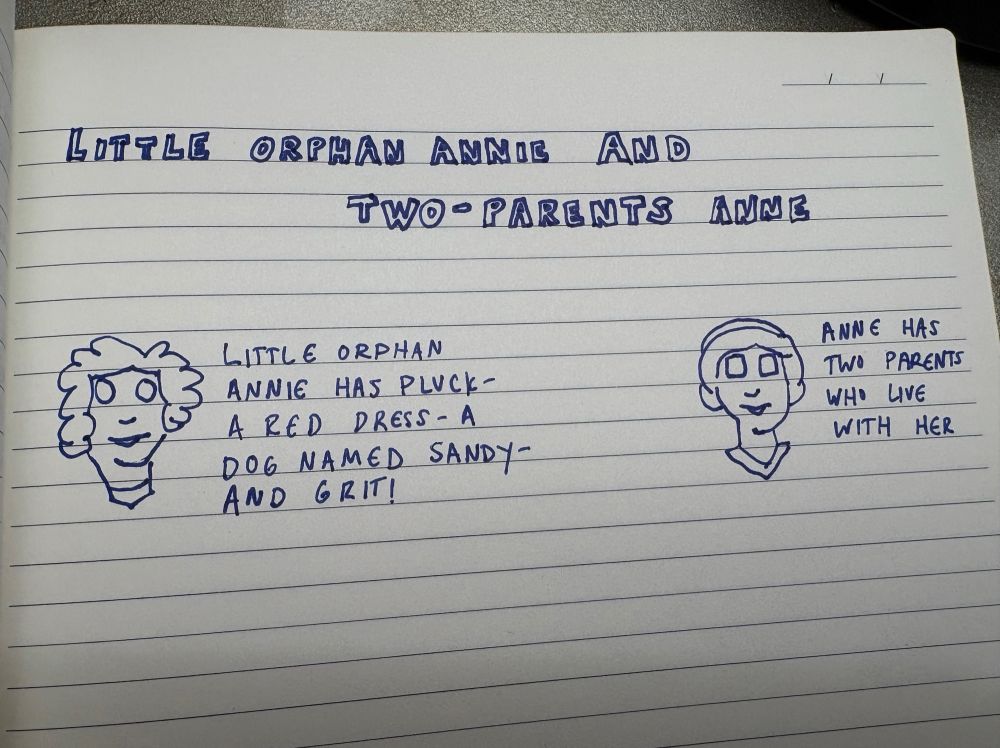 LITTLE ORPHAN ANNIE AND
TWO-PARENTS ANNE
LITTLE ORPHAN
ANNIE HAS PLUCK-
A RED DRESS-A
DOG NAMED SANDY-
AND GRIT!
ANNE HAS
TWO PARENTS
WHO LIVE
WITH HER